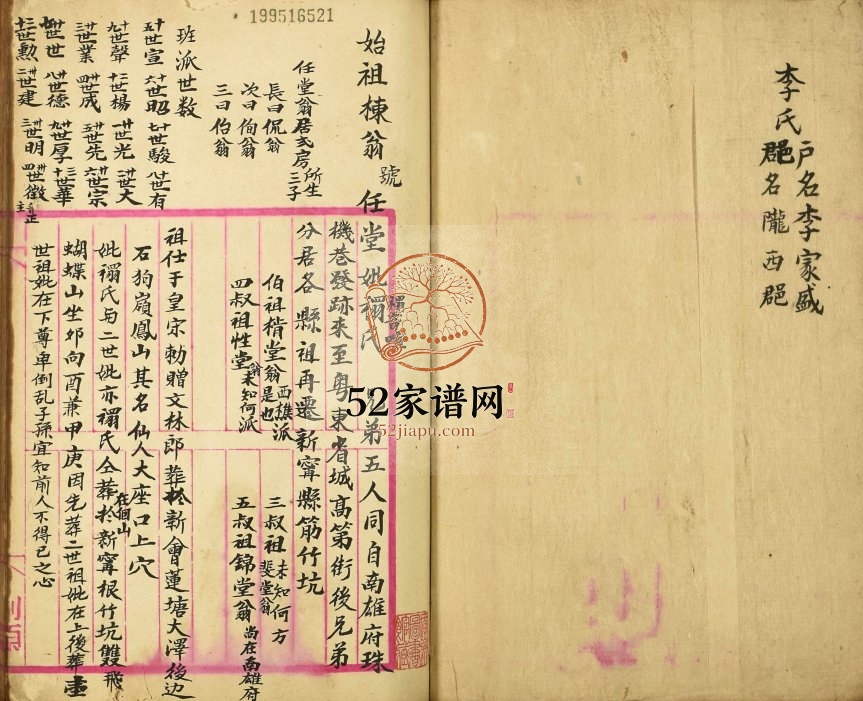 李氏 户名李家盛
郡名隴西郡
199516521
始祖棟翁號任堂妣禤氏兄弟五人同自南雄府珠
機巷發跡來至粤東省城高第街後兄弟
分居各縣祖再遷新寧縣筋竹坑
任堂翁居弍房所生三子
長曰侃翁
次曰侚翁
三曰伯翁
伯祖楷堂翁是也西樵派
三叔祖斐堂翁未知何方
四叔祖性堂翁未知何派
五叔祖錦堂翁尚在南雄府
班派世数
五十世宣 六十世昭 七十世駿 八十世有
九十世聲 十二世楊 廿一世光 廿二世大
廿三世業 廿四世成 廿五世先 廿六世宗
廿七世世 廿八世德 廿九世厚 三十世華
卅一世勲 卅二世建 卅三世明 卅四世徵
祖仕于皇宗勅贈文林郎葬於新會蓮塘大澤後边
石狗嶺鳳山其名仙人大座口上穴
妣禤氏与二世妣亦禤氏仝葬於新寧根竹坑雙飛
在佪山
蝴蝶山坐夘向酉兼甲庚因先葬二世祖妣在上後葬
世祖妣在下尊卑倒乱子孫宜知前人不得已之心
52家谱网
52jiapu.com